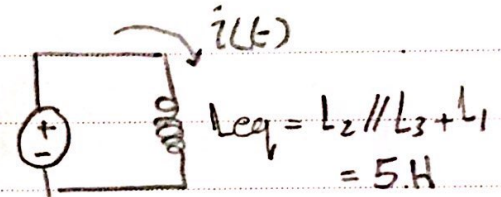 i(t)
+
-
Leq = L2 // L3 + L1
= 5.H